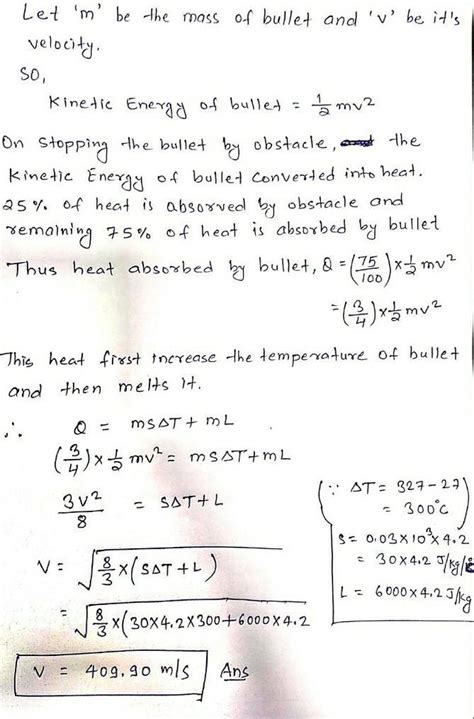 Let 'm' be the mass of bullet and 'v' be it's
velocity.
SO,
Kinetic Energy of bullet = 1/2 mv²
On Stopping the bullet by obstacle, the
Kinetic Energy of bullet Converted into heat.
25% of heat is absorved by obstacle and
remaining 75% of heat is absorbed by bullet
Thus heat absorbed by bullet, Q = (75/100) × 1/2 mv²
= (3/4) × 1/2 mv²
This heat first increase the temperature of bullet
and then melts it.
∴ Q = msΔT + mL
(3/4) × 1/2 mv² = msΔT + mL
3v²/8 = sΔT + L
V = √(8/3 × (sΔT + L)
= √(8/3 × (30×4.2×300+6000×4.2
V = 409.90 m/s Ans
(∵ ΔT = 327-27
= 300°C)
S = 0.03×10³×4.2
= 30×4.2 J/kg/
L = 6000×4.2 J/kg